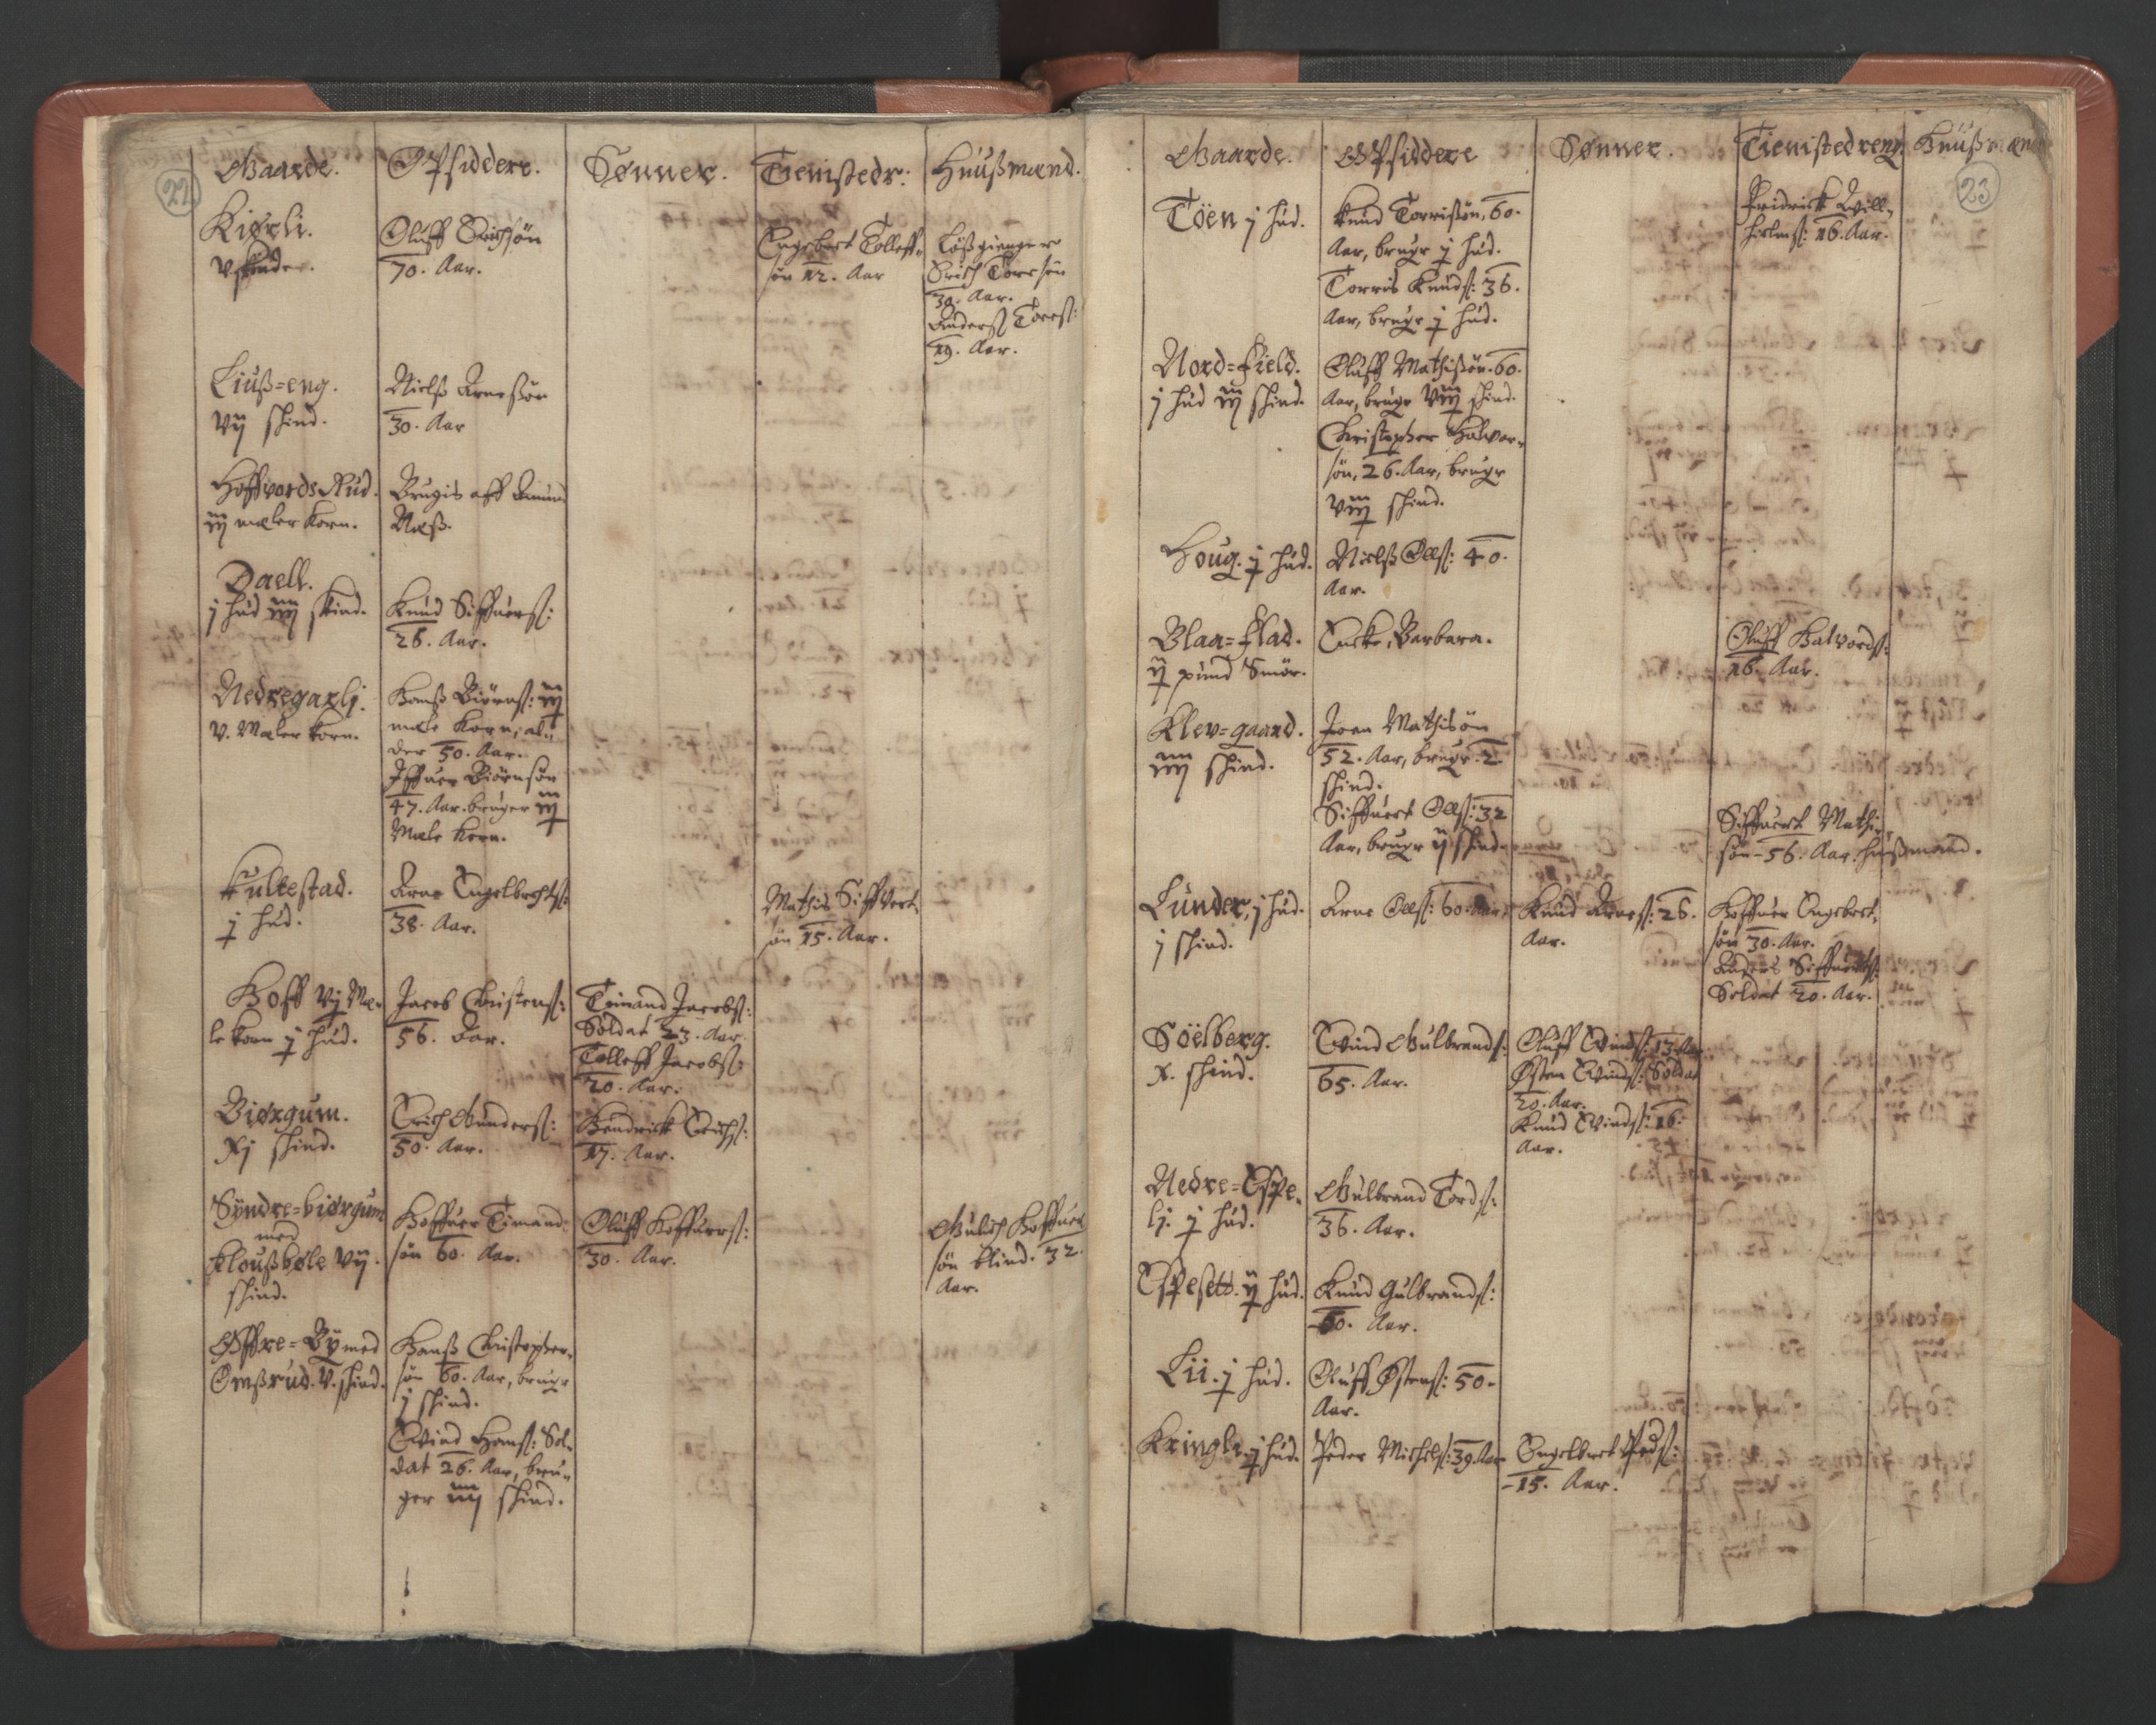 22
Gaarde. Opsiddere. Sønner. Tienistedr: Huußmænd.
Kiørli.
V skinder.
Oluff Erichsøn
70. Aar.
Engebret Tolleff„
søn 12. Aar
Løßgienger
Erich Toresøn
30. Aar.
Anderß Tores:
19. Aar.
Liuß=eng.
Vij skind.
Nielß Arnesøn
30. Aar
Hoffvords Rud.
iij mæler korn.
Brugis aff Amund
Næß.
Daell.
j hud iiij skind.
Knud Siffuers:
26. Aar.
Nedregarlj.
V. Mæler korn.
Hanß Biørns: iij
mæle korn, al„
der 50. Aar.
Iffuer Biørnsøn
47. Aar. bruger iij
Mæle korn.
Fulkestad.
j hud.
Arne Engelbrechts:
38. Aar.
Mathis Siffvert„
søn 15. Aar.
Hoff Vj Mæ„
le korn j hud.
Jacob Christens:
56. Aar.
Timand Jacobs:
Soldat 23. Aar.
Tolleff Jacobs:
20. Aar.
Biørgum.
Xj skind.
Erich Gunders:
50. Aar.
Hendrick Erichs:
17. Aar.
Syndre=biørgum
med
Kloußbøle Vij
skind.
Hoffuer Timand
søn 60. Aar.
Oluff Hoffuers:
30. Aar.
Gulich Hoffuer
søn blind. 32.
Aar.
Øffre=Bÿ med
Omßrud. V. skind.
Hanß Christopher„
søn 60. Aar, bruger
j skind.
Evind Hans: Sol„
dat 26. Aar, bru„
ger iiij skind.
23
Gaarde. Opsiddere Sønner. Tienistedreng. Huußmænd
Töen j hud.
Knud Torrissøn, 60.
Aar, bruger j hud.
Torris Knuds: 36.
Aar, bruger j hud.
Fridrick Will„
helms: 16. Aar.
Nord=Field.
j hud iij skind.
Oluff Mathissøn. 60.
Aar, bruger Viij skind.
Christopher Halvor„
søn, 26. Aar, bruger
Viij skind.
Houg. j hud.
Nielß Olls: 40.
Aar.
Blaa=Flad.
ij pund Smør.
Encke, Barbara.
Oluff Halvords:
16. Aar.
Klev=gaard.
iiij skind.
Joen Mathisøn
52. Aar, bruger 2
skind.
Siffuert Olls: 32
Aar, bruger ij skind
Siffuert Mathis„
søn 56. Aar. hußmand.
Lunder, j hud.
j skind.
Arne Olls: 60. Aar,
Knud Arnes: 26.
Aar.
Hoffuer Engebret„
søn 30. Aar.
Anders Siffuerts:
Soldat 20. Aar.
Söelberg.
X. skind.
Evind Gulbrands:
65. Aar.
Oluff Evinds: 13 Aar
Østen Evinds: Soldat
20. Aar.
Knud Evinds: 16.
Aar.
Nedre=Espe„
lj. j hud.
Gulbrand Tords:
36. Aar.
Espesett. ij hud.
Knud Gulbrands:
60. Aar.
Lii. j hud.
Oluff Østens: 50.
Aar.
Kringle. j hud.
Peder Michels: 39. Aar
Engelbret Peds:
15. Aar.